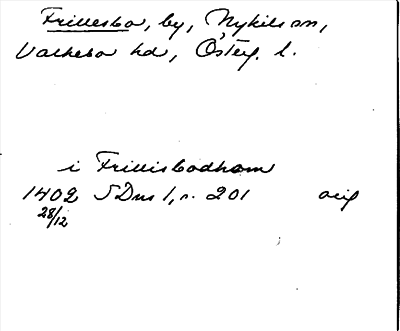 Frillesbo, by, Nykils sn,
Valkebo hd, Österg. l.
i Frillisbodhom
1402 SDns 1, n. 201 orig
28/12